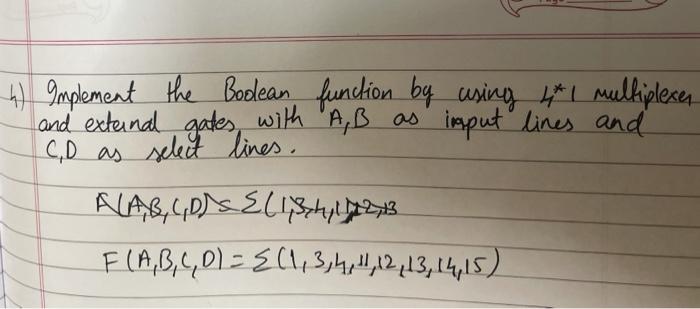 4) Implement the Boolean function by using 4*1 multiplexer
and external gates with A,B as input lines and
C,D as select lines.
F(A,B,C,D) = Σ(1,3,4,11,12,13
F(A,B,C,D) = Σ(1,3,4,11,12,13,14,15)